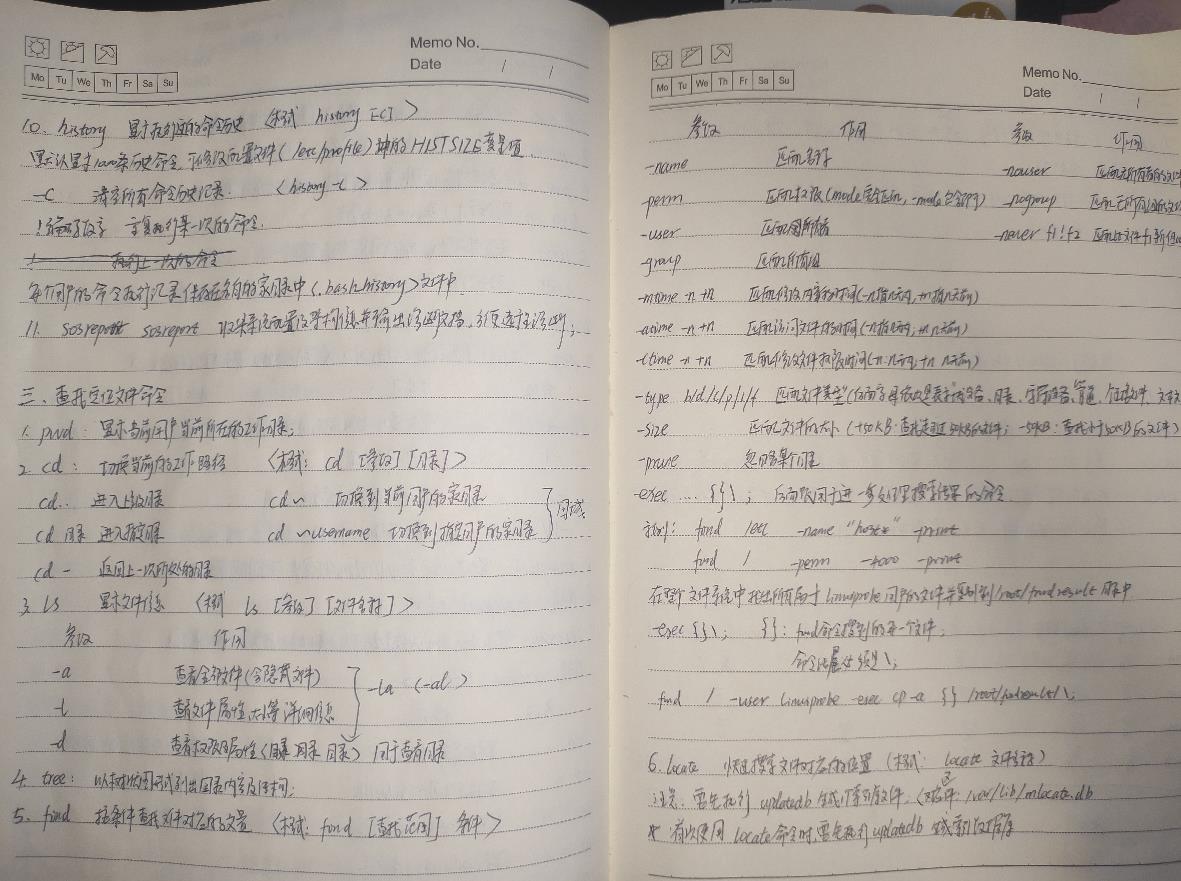 Memo No.
Date / /
Mo Tu We Th Fr Sa Su
10. history 显示执行过的命令历史 <格式 history [-c] >
默认显示1000条历史命令,可修改配置文件(/etc/profile)中的HISTSIZE变量值
-c 清空所有命令历史记录. <history -c >
!编码数字 重复执行某一次的命令.
每个用户的命令执行记录保存在各自的家目录中<.bash_history>文件中
11. sosreport 收集系统配置及架构信息并输出诊断文档,
三、查找定位文件命令
1. pwd: 显示当前用户当前所在的工作目录;
2. cd: 切换当前的工作路径 <格式: cd [参数] [目录]>
cd.. 进入上级目录 cd ~ 切换到当前用户的家目录
cd 目录 进入指定目录 cd ~username 切换到指定用户的家目录
cd - 返回上一次所处的目录
3. ls 显示文件信息 <格式 ls [参数] [文件名称] >
参数 作用
-a 查看全部文件(含隐藏文件) -la (-al)
-l 查看文件属性,大小等详细信息
-d 查看权限属性<目录 目录 目录> 用于查看目录
4. tree: 以树状图形式列出目录内容及结构;
5. find 按条件查找文件对应的位置 <格式: find [查找范围] 条件 >
Memo No.
Date / /
Mo Tu We Th Fr Sa Su
参数 作用 参数 作用
-name 匹配名称 -nouser 匹配无所有者的文
-perm 匹配权限(mode完全匹配, -mode包含即可) -nogroup 匹配无所有组的文
-user 匹配所有者 -newer f1 !f2 匹配比文件f1新但
-group 匹配所有组
-mtime -n +n 匹配修改内容的时间(-n指n天内, +n指n天前)
-atime -n +n 匹配访问文件的时间(-n指n天内, +n n天前)
-ctime -n +n 匹配修改文件权限时间(-n: n天内, +n n天前)
-type b/d/c/p/l/f 匹配文件类型(后面字母依次是表示块设备、目录、字符设备、管道、链接文件、文本文
-size 匹配文件的大小 (+50KB: 查找超过50KB的文件; -50KB: 查找小于50KB的文件)
-prune 忽略某个目录
-exec ... {} \; 后面跟用于进一步处理搜索结果的命令
find /etc -name "host*" -print
find / -perm -4000 -print
在整个文件系统中找出所有属于linuxprobe用户的文件并复制到/root/findresult目录中
-exec {} \; {}: find命令搜到的每一个文件;
命令结尾必须是\;
find / -user linuxprobe -exec cp -a {} /root/findresult/ \;
6. locate 快速搜索文件对应的位置 (格式: locate 文件名称)
注意: 需先执行 updatedb 生成 索引库文件, /var/lib/mlocate.db
* 首次使用 locate命令时,需先执行updatedb 生成索引数据库